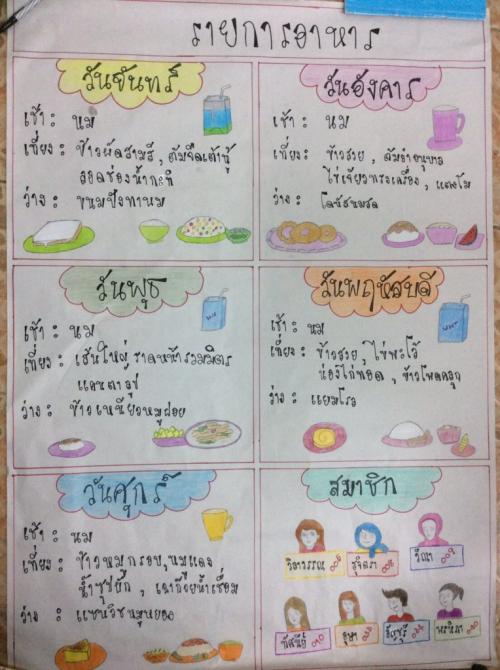 รายการอาหาร
วันจันทร์
เช้า : นม
เที่ยง : ข้าวผัดสามสี , ต้มจืดเต้าหู้
ลอดช่องน้ำกะทิ
ว่าง : ขนมปังทานม
วันอังคาร
เช้า : นม
เที่ยง : ข้าวสวย , ส้มตำอนุบาล
ไข่เจียวทรงเครื่อง , แตงโม
ว่าง : โดนัทนมสด
วันพุธ
เช้า : นม
เที่ยง : เส้นใหญ่ราดหน้ารวมมิตร
แคนตาลูป
ว่าง : ข้าวเหนียวหมูฝอย
วันพฤหัสบดี
เช้า : นม
เที่ยง : ข้าวสวย , ไข่พะโล้
น่องไก่ทอด , ข้าวโพดคลุก
ว่าง : แยมโรล
วันศุกร์
เช้า : นม
เที่ยง : ข้าวหมูกรอบ , หมูแดง
น้ำซุปผัก , เฉาก๊วยน้ำเชื่อม
ว่าง : แซนวิชหมูหยอง
สมาชิก
วิลาวรรณ สุจิตรา วีณา
ทัศนีย์ อุษา